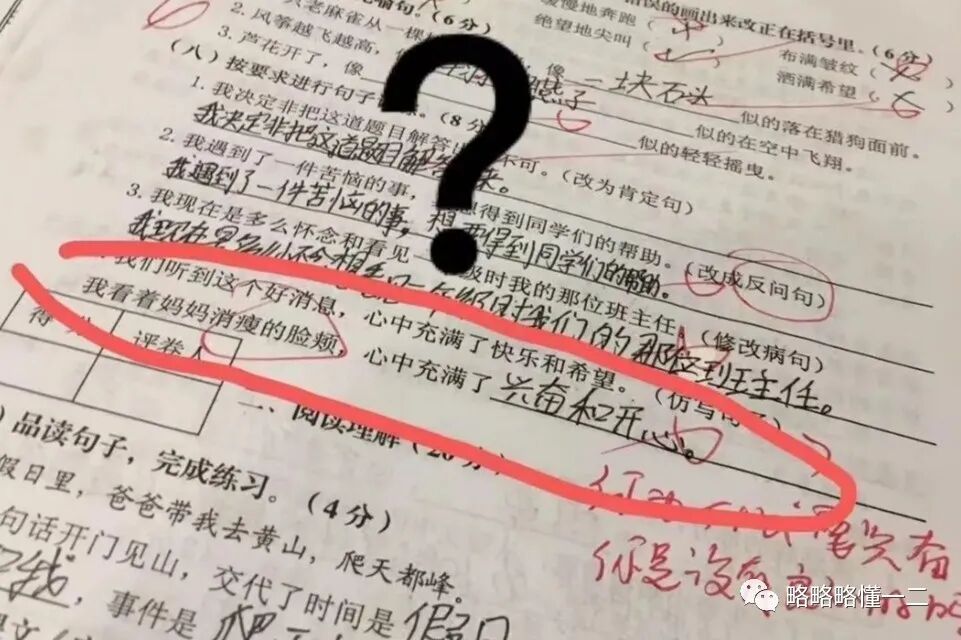 错误的画出来改正在括号里。(6分)
喻句。(6分)
缓慢地奔跑(
布满皱纹(
老麻雀从一棵
绝望地尖叫(
洒满希望(
2. 风筝越飞越高，
像 一块石头 似的落在猎狗面前。
3. 芦花开了，像
燕子 似的在空中飞翔。
似的轻轻摇曳。
(八)按要求进行句子 练。(8分)
1. 我决定非把这道题目解答出 不可。(改为肯定句)
我决定非把这道题目解答出来。
2. 我遇到了一件苦恼的事， 想得到同学们的帮助。(改成反问句)
我遇到了一件苦恼的事，想要得到同学们的帮助。
3. 我现在是多么怀念和看见一 级时我的那位班主任。(修改病句)
我现在是多么怀念 一年级时我们的那位 班主任。
我们听到这个好消息，心中充满了快乐和希望。(仿写句子)
我看着妈妈消瘦的脸颊，心中充满了 兴奋和开心。
得
评卷人
二、阅读理解(26分)
品读句子，完成练习。(4分)
假日里，爸爸带我去黄山，爬天都峰。
句话开门见山，交代了时间是 假日
，事件是 爬
兴奋
你是没
略略略懂一二